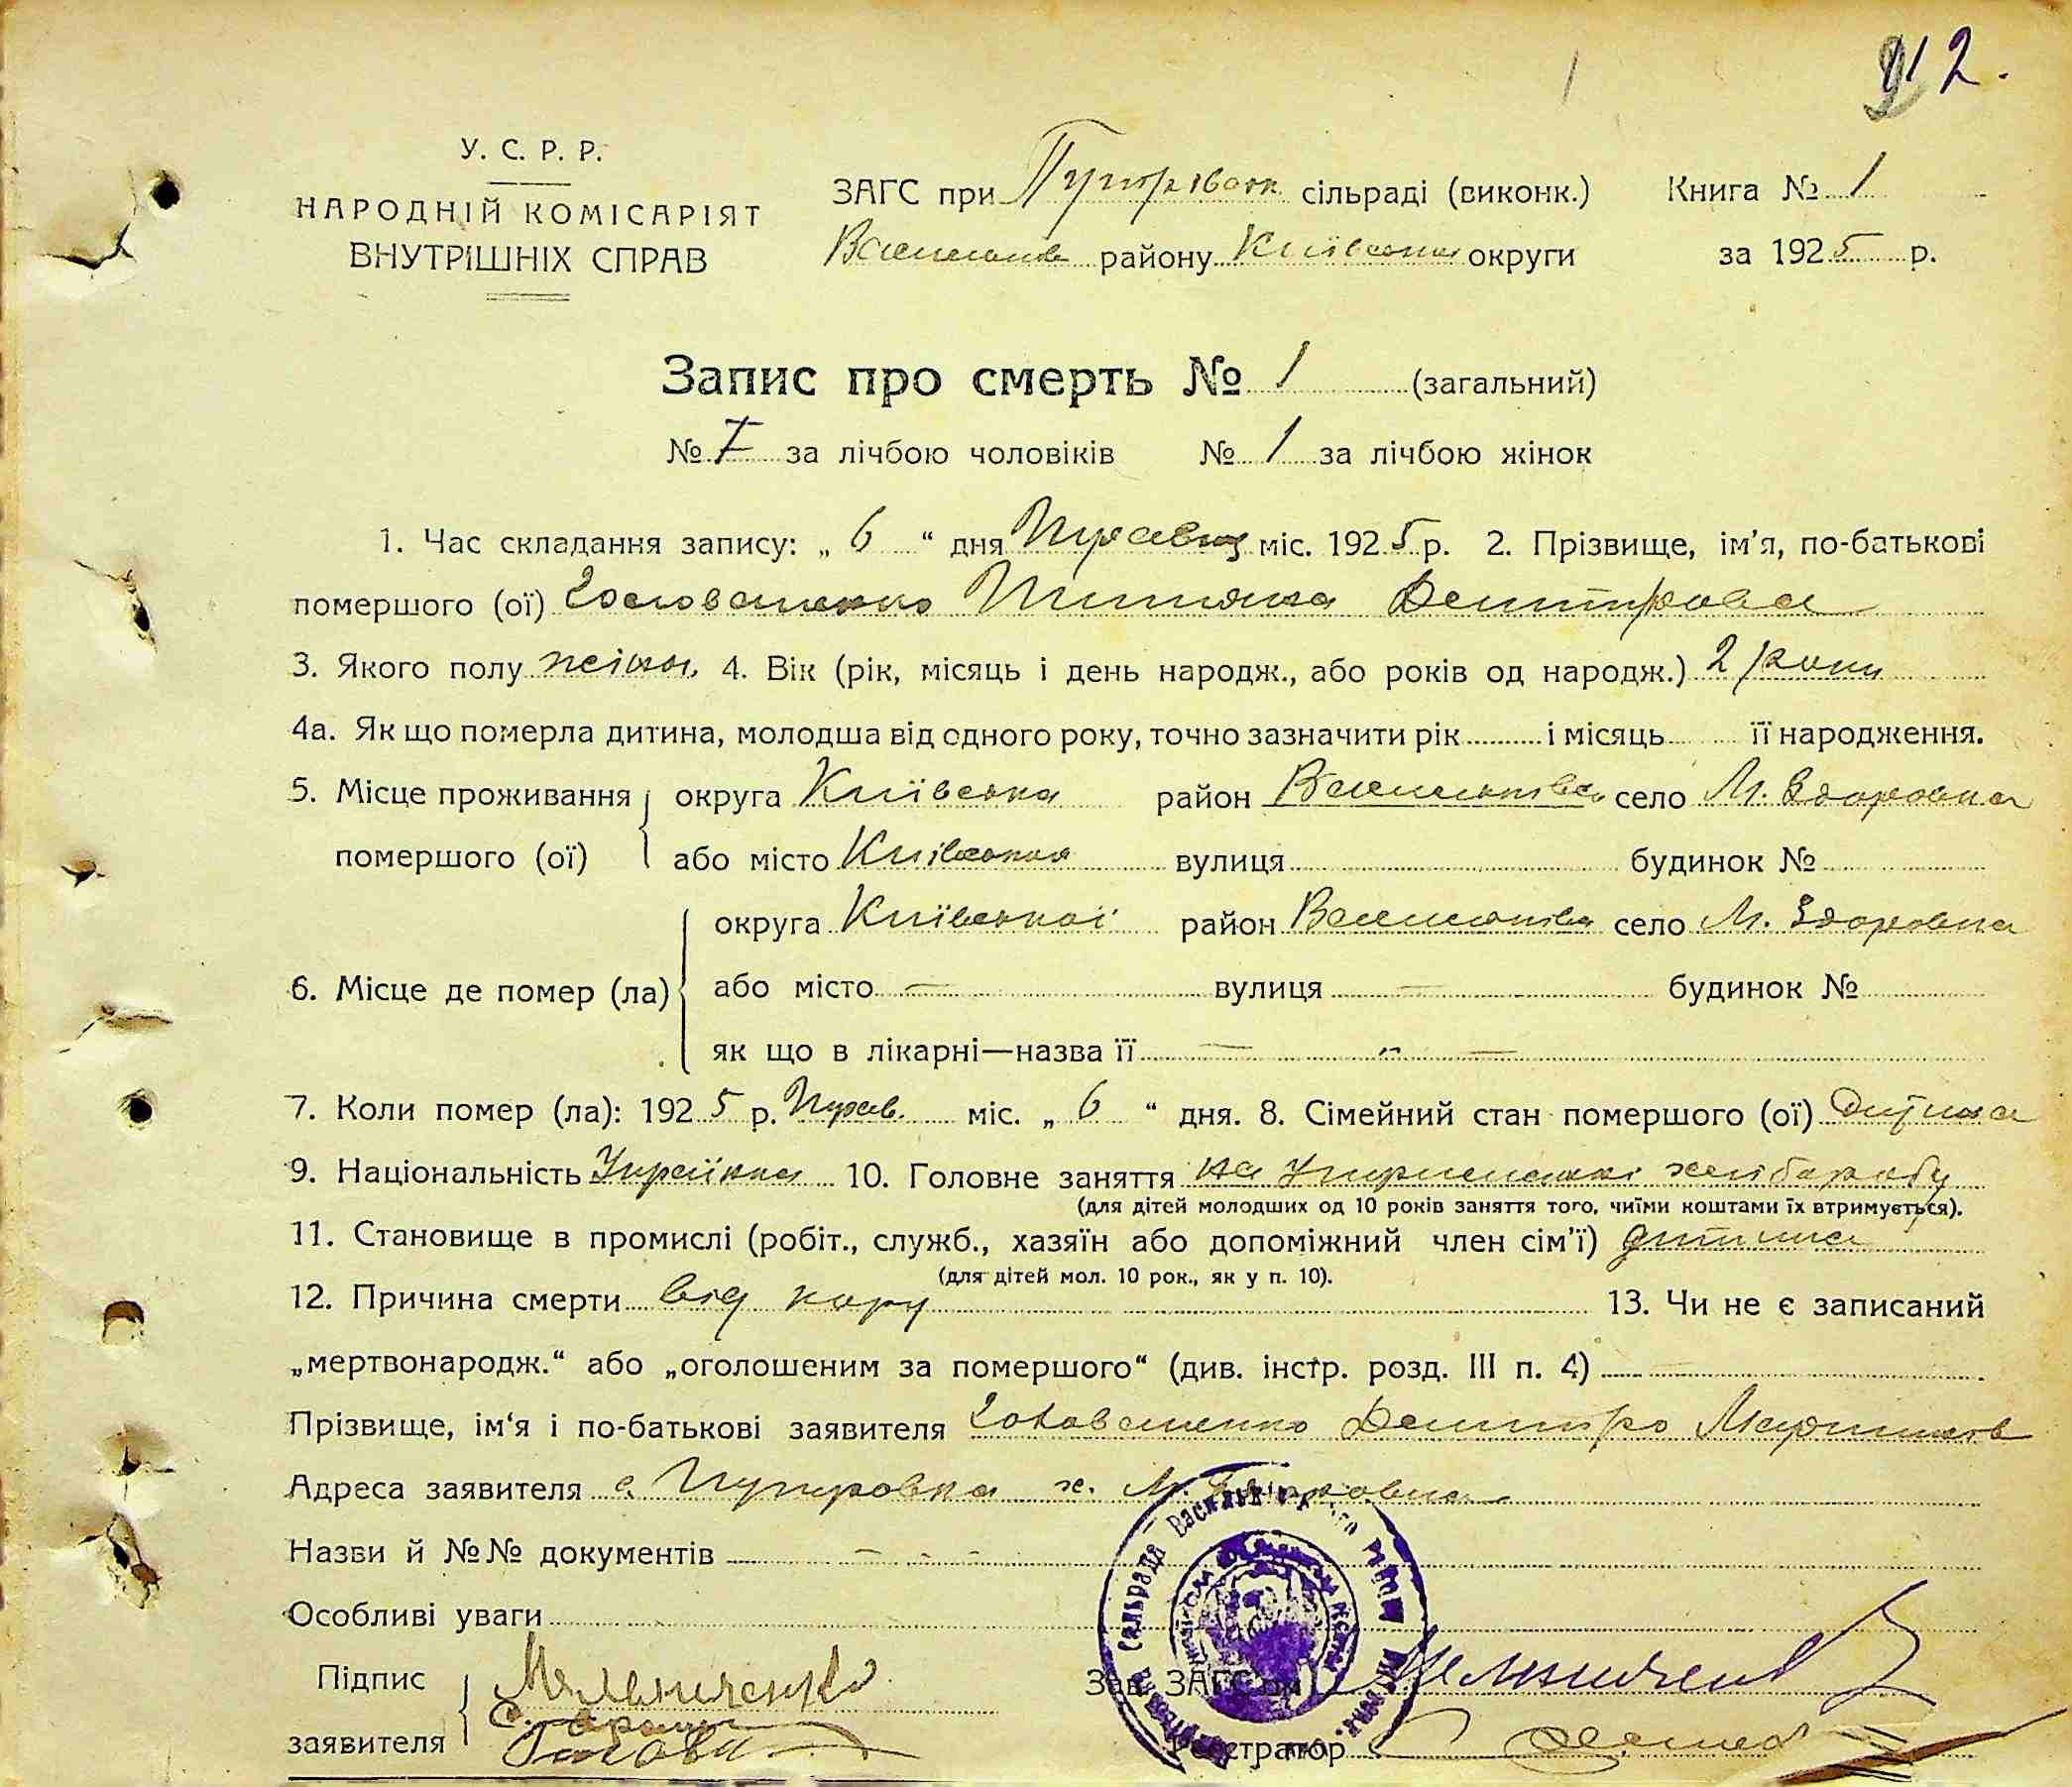 112.
У. С. Р. Р.
НАРОДНІЙ КОМІСАРІЯТ
ВНУТРІШНІХ СПРАВ
ЗАГС при сільраді (виконк.) Книга № 1
району Київської округи за 1925 р.
Запис про смерть № 1 (загальний)
№ за лічбою чоловіків № 1 за лічбою жінок
1. Час складання запису: „ 6 “ дня міс. 1925 р. 2. Прізвище, ім’я, по-батькові
помершого (ої) Головатенко Дмитрова
3. Якого полу жіноч. 4. Вік (рік, місяць і день народж., або років од народж.) 2 роки
4а. Як що померла дитина, молодша від одного року, точно зазначити рік і місяць її народження.
5. Місце проживання округа Київська район село М. Здоровка
помершого (ої) або місто вулиця будинок №
округа Київської район село М. Здоровка
6. Місце де помер (ла) або місто — вулиця — будинок №
як що в лікарні—назва її — „ —
7. Коли помер (ла): 1925 р. міс. „ 6 “ дня. 8. Сімейний стан помершого (ої) Дитина
9. Національність Украінка 10. Головне заняття на хліборобу
(для дітей молодших од 10 років заняття того, чиїми коштами їх втримується).
11. Становище в промислі (робіт., служб., хазяїн або допоміжний член сім’ї) дитина
(для дітей мол. 10 рок., як у п. 10).
12. Причина смерти від кору 13. Чи не є записаний
„мертвонародж.“ або „оголошеним за помершого“ (див. інстр. розд. III п. 4)
Прізвище, ім‘я і по-батькові заявителя Головатенко Дмитро
Адреса заявителя с. х. М. Здоровка
Назви й №№ документів – – –
Особливі уваги
Підпис Мельниченко Зав. ЗАГС'ом
заявителя Реєстратор